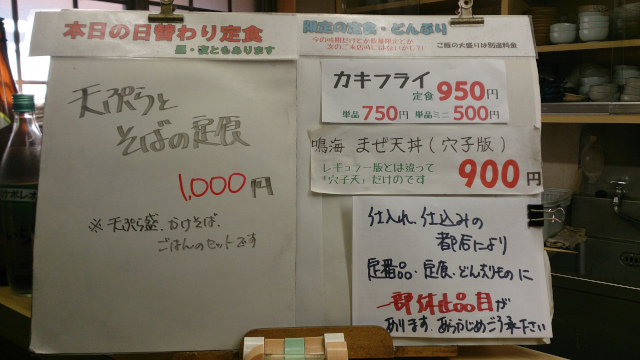 本日の日替わり定食
昼・夜ともあります
天ぷらと
そばの定食
1,000円
※天ぷら盛、かけそば、
ごはんのセットです
限定の定食・どんぶり
ご飯の大盛りは別途料金
カキフライ
定食 950円
単品 750円 単品ミニ 500円
鳴海 まぜ天丼(穴子版)
レギュラー版とは違って
「穴子天」だけのです
900円
仕入れ、仕込みの
都合により
定番品・定食・どんぶりものに
一部休止品目が
あります、あらかじめご了承下さい